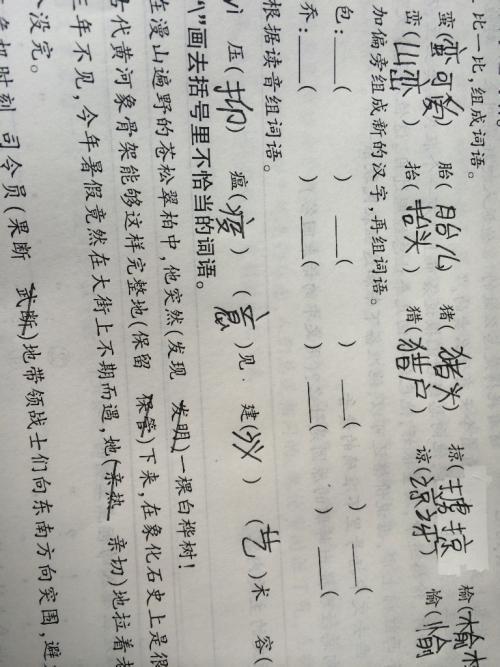 比一比,组成词语。
蛮(蛮可爱) 胎(胎儿) 猪(猪头) 掠(掳掠 榆(榆
峦(山峦) 抬(抬头) 猎(猎户) 谅( ) 愉(愉
加偏旁组成新的汉字,再组词语。
包:___( ) ___( ) ___( ) ___(
乔:___( ) ___( ) ___( ) ___(
根据读音组词语。
yì 压(抑) 瘟(疫) (意)见 建(议) (艺)术 容(
“\”画去括号里不恰当的词语。
在漫山遍野的苍松翠柏中,他突然(发现 发明)一棵白桦树!
古代黄河象骨架能够这样完整地(保留 保管)下来,在象化石史上是很
三年不见,今年暑假竟然在大街上不期而遇,她(亲热 亲切)地拉着
没完。
危机时刻,司令员(果断 武断)地带领战士们向东南方向突围,避